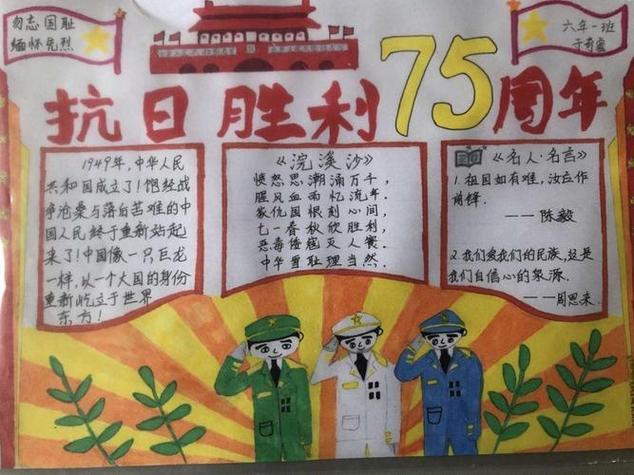 勿忘国耻
缅怀先烈
六年一班
抗日胜利75周年
1949年,中华人民
共和国成立了!饱经战
争沧桑与落后苦难的中
国人民终于重新站起
来了!中国像一只巨龙
一样,以一个大国的身份
重新屹立于世界
东方!
《浣溪沙》
愤怒思潮涌万千,
腥风血雨忆流年.
家仇国恨刻心间,
七一春秋欣胜利,
恶毒倭寇灭人餐.
中华雪耻理当然.
《名人·名言》
1.祖国如有难,汝应作
前锋.
——陈毅
2.我们爱我们的民族,这是
我们自信心的泉源.
——周恩来